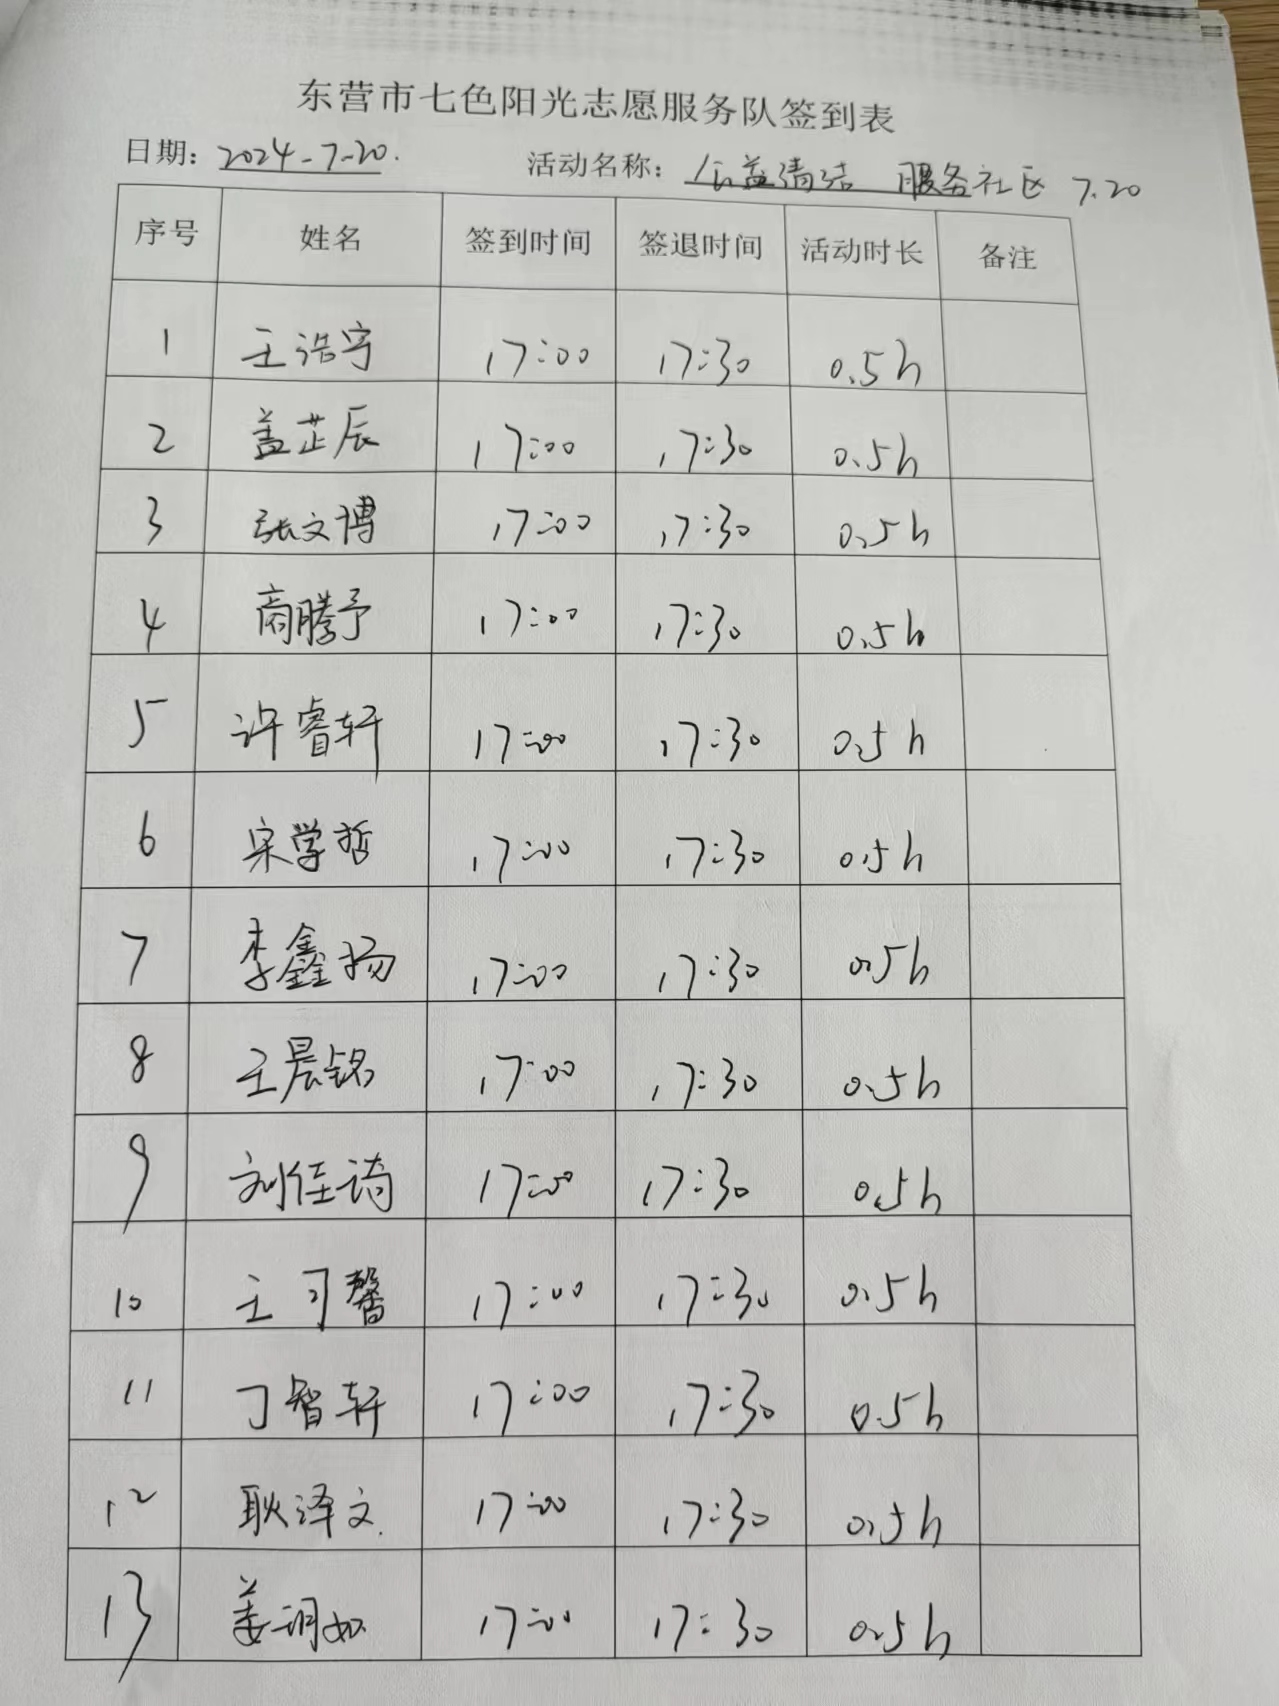 东营市七色阳光志愿服务队签到表
日期：2024-7-20. 活动名称：公益清洁 服务社区 7.20
序号 姓名 签到时间 签退时间 活动时长 备注
1 王浩宇 17:00 17:30 0.5h
2 盖芷辰 17:00 17:30 0.5h
3 张文博 17:00 17:30 0.5h
4 商腾予 17:00 17:30 0.5h
5 许睿轩 17:00 17:30 0.5h
6 宋学哲 17:00 17:30 0.5h
7 李鑫扬 17:00 17:30 0.5h
8 王晨铭 17:00 17:30 0.5h
9 刘佳琦 17:00 17:30 0.5h
10 王可馨 17:00 17:30 0.5h
11 丁智轩 17:00 17:30 0.5h
12 耿泽文 17:00 17:30 0.5h
13 姜如 17:00 17:30 0.5h